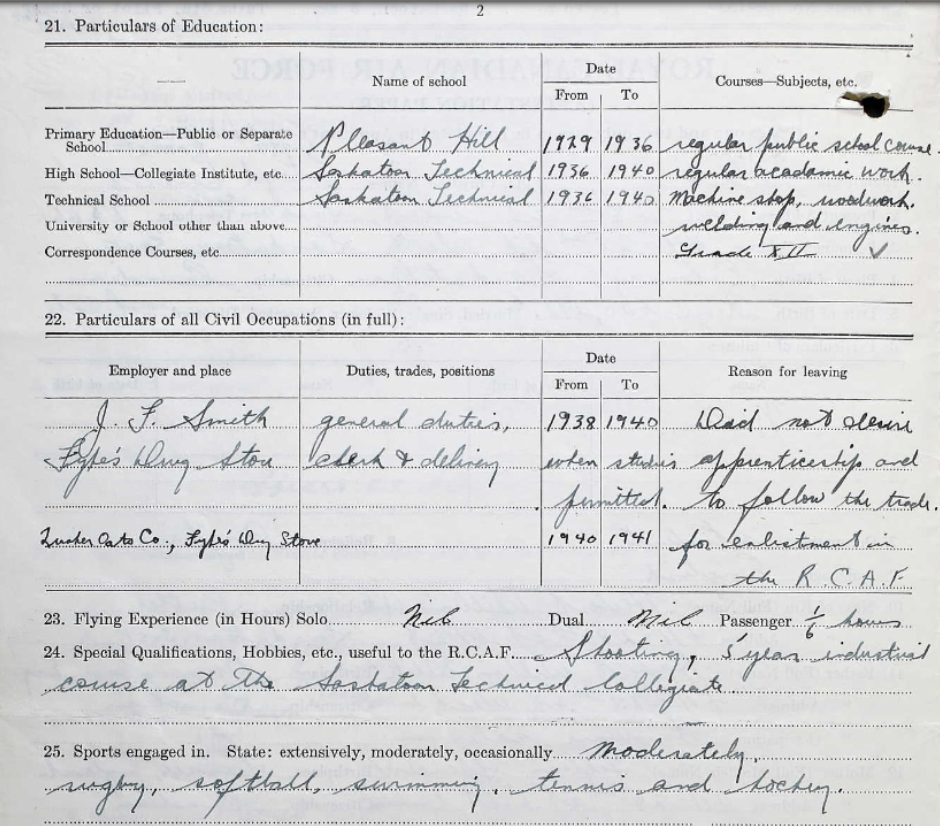 2
21. Particulars of Education:
Name of school Date Courses—Subjects, etc.
From To
Primary Education—Public or Separate
School Pleasant Hill 1929 1936 regular public school course.
High School—Collegiate Institute, etc. Saskatoon Technical 1936 1940 regular academic work.
Technical School Saskatoon Technical 1936 1940 Machine shop, woodwork.
University or School other than above welding and engines.
Correspondence Courses, etc. Grade XII ✓
22. Particulars of all Civil Occupations (in full):
Employer and place Duties, trades, positions Date Reason for leaving
From To
J. F. Smith general duties, 1938 1940 Did not desire
Fyfe's Drug Store clerk & delivery when studies apprenticeship and
permitted. to follow the trade.
Quaker Oats Co., Fyfe's Drug Store 1940 1941 for enlistment in
the R C A F
23. Flying Experience (in Hours) Solo Nil Dual Nil Passenger 1/6 hours
24. Special Qualifications, Hobbies, etc., useful to the R.C.A.F. Shooting, 5 year industrial
course at the Saskatoon Technical Collegiate
25. Sports engaged in. State: extensively, moderately, occasionally moderately,
rugby, softball, swimming, tennis and hockey.